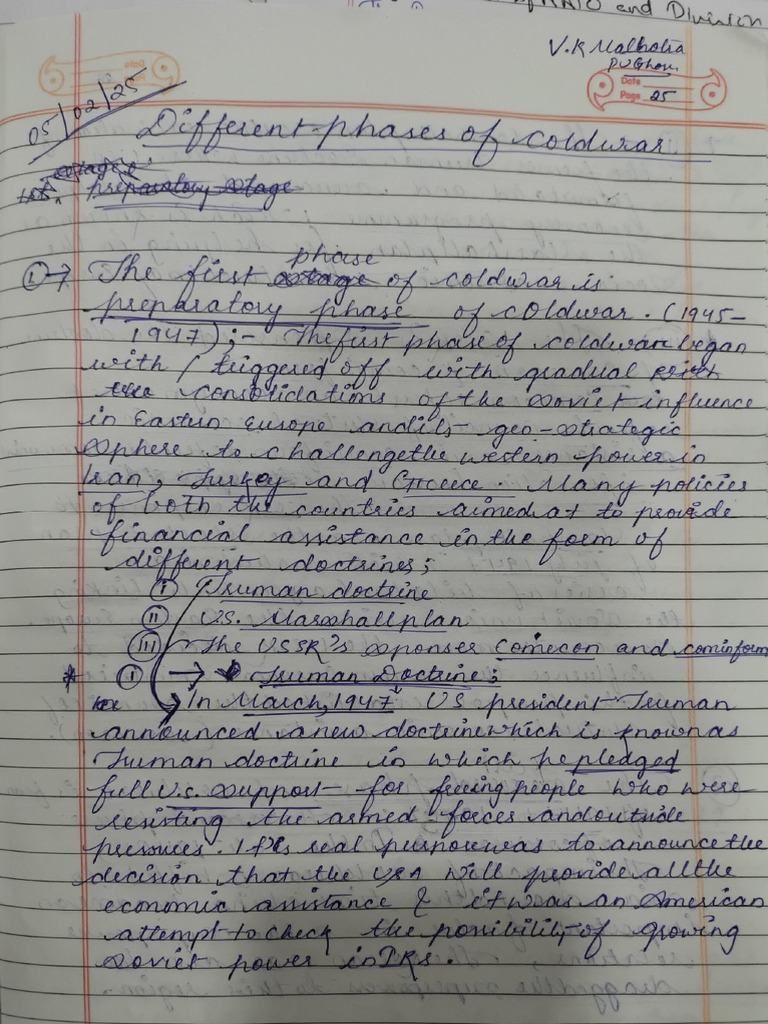 and Division
V.K Malhotra
Date
Page 25
05/02/25
Different phases of coldwar
stage
preparatory stage
phase
① → The first stage of coldwar is
preparatory phase of coldwar. (1945-
1947) ;- The first phase of coldwar began
with / triggered off with gradual with
the consolidations of the soviet influence
in Eastern Europe and its geo-strategic
sphere to challenge the western power in
Iran, Turkey and Greece. Many policies
of both the countries aimed at to provide
financial assistance in the form of
different doctrines;
(i) Truman doctrine
(ii) U.S. Marshall plan
(iii) The USSR's sponses Comecon and cominform
* (i) → Truman Doctrine;
→ In March, 1947 US president Truman
announced a new doctrine which is known as
Truman doctrine in which he pledged
full U.S. support for freeing people who were
resisting the armed forces and outside
pressures. It's real purpose was to announce the
decision that the USA will provide all the
economic assistance & it was an American
attempt to check the possibility of growing
soviet power in IRs.